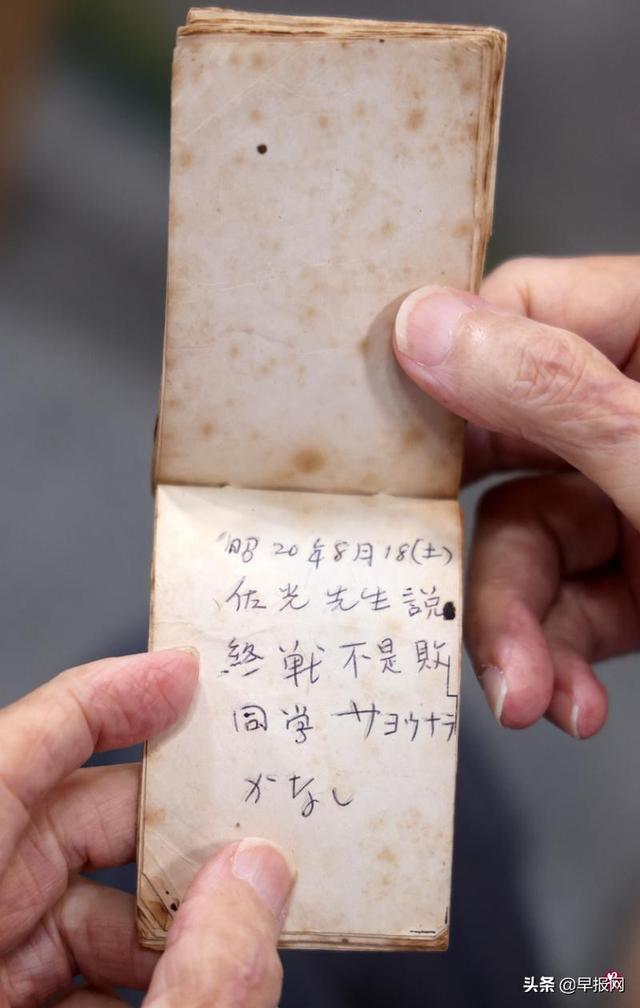 昭20年8月18(土)
佐光先生説
終戦不是敗
同学 サヨウナラ
かなし
头条 @早报网